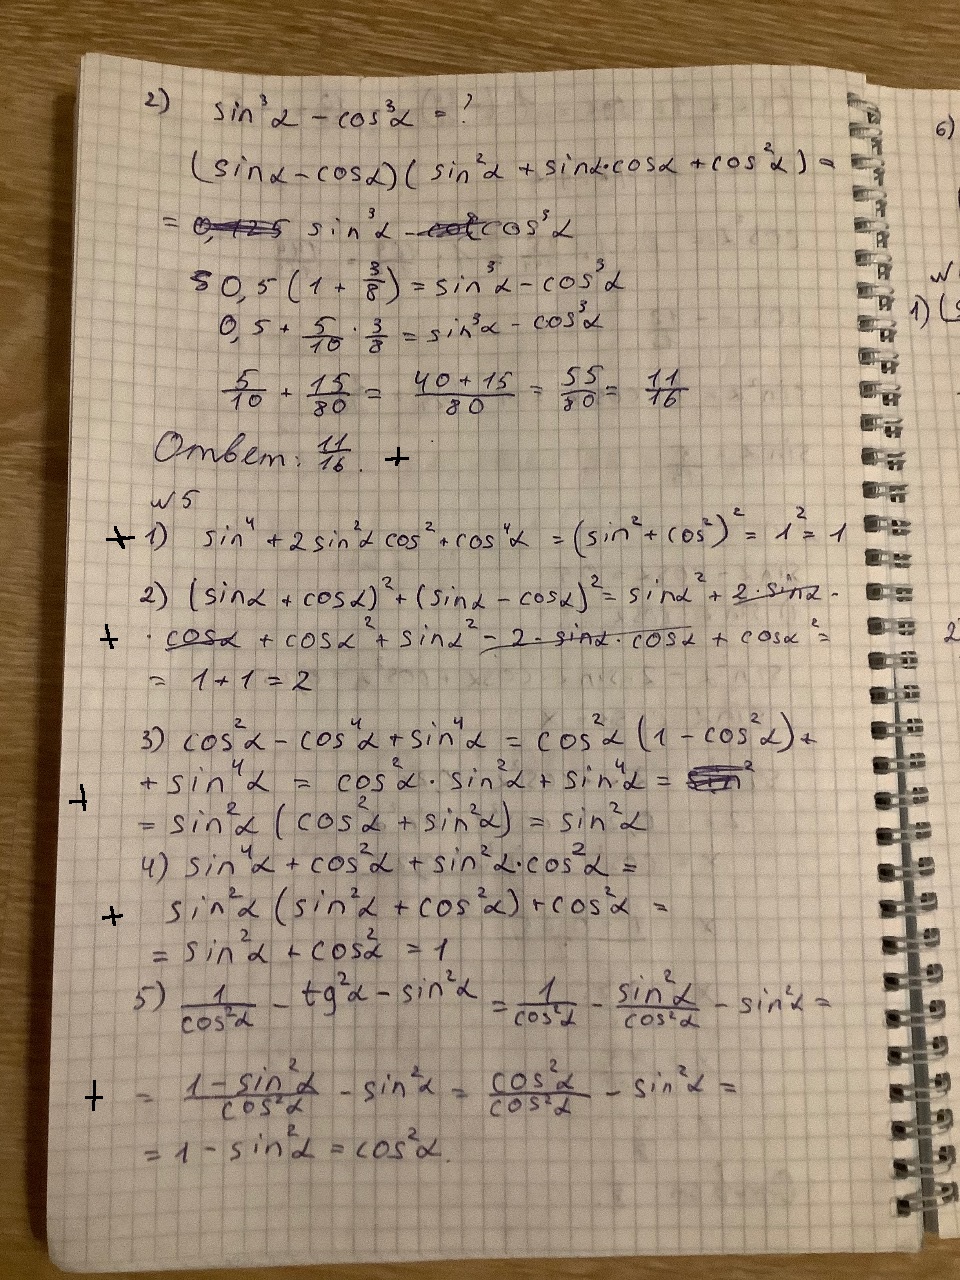 2) sin³α – cos³α = ?
(sinα – cosα)( sin²α + sinα·cosα + cos²α ) =
= sin³α – cos³α
0,5 (1 + 3/8) = sin³α – cos³α
0,5 + 5/10 · 3/8 = sin³α – cos³α
5/10 + 15/80 = (40 + 15)/80 = 55/80 = 11/16
Ответ: 11/16. +
№5
+ 1) sin⁴ + 2 sin²α cos² + cos⁴α = (sin² + cos²)² = 1² = 1
2) (sinα + cosα)² + (sinα – cosα)² = sinα² + 2·sinα ·
+ · cosα + cosα² + sinα² – 2·sinα·cosα + cosα² =
= 1 + 1 = 2
3) cos²α – cos⁴α + sin⁴α = cos²α (1 – cos²α) +
+ + sin⁴α = cos²α · sin²α + sin⁴α =
= sin²α ( cos²α + sin²α) = sin²α
4) sin⁴α + cos²α + sin²α·cos²α =
+ sin²α (sin²α + cos²α) + cos²α =
= sin²α + cos²α = 1
5) 1/cos²α – tg²α – sin²α = 1/cos²α – sin²α/cos²α – sin²α =
+ = (1 – sin²α)/cos²α – sin²α = cos²α/cos²α – sin²α =
= 1 – sin²α = cos²α.
6)
№
1) (s
2)